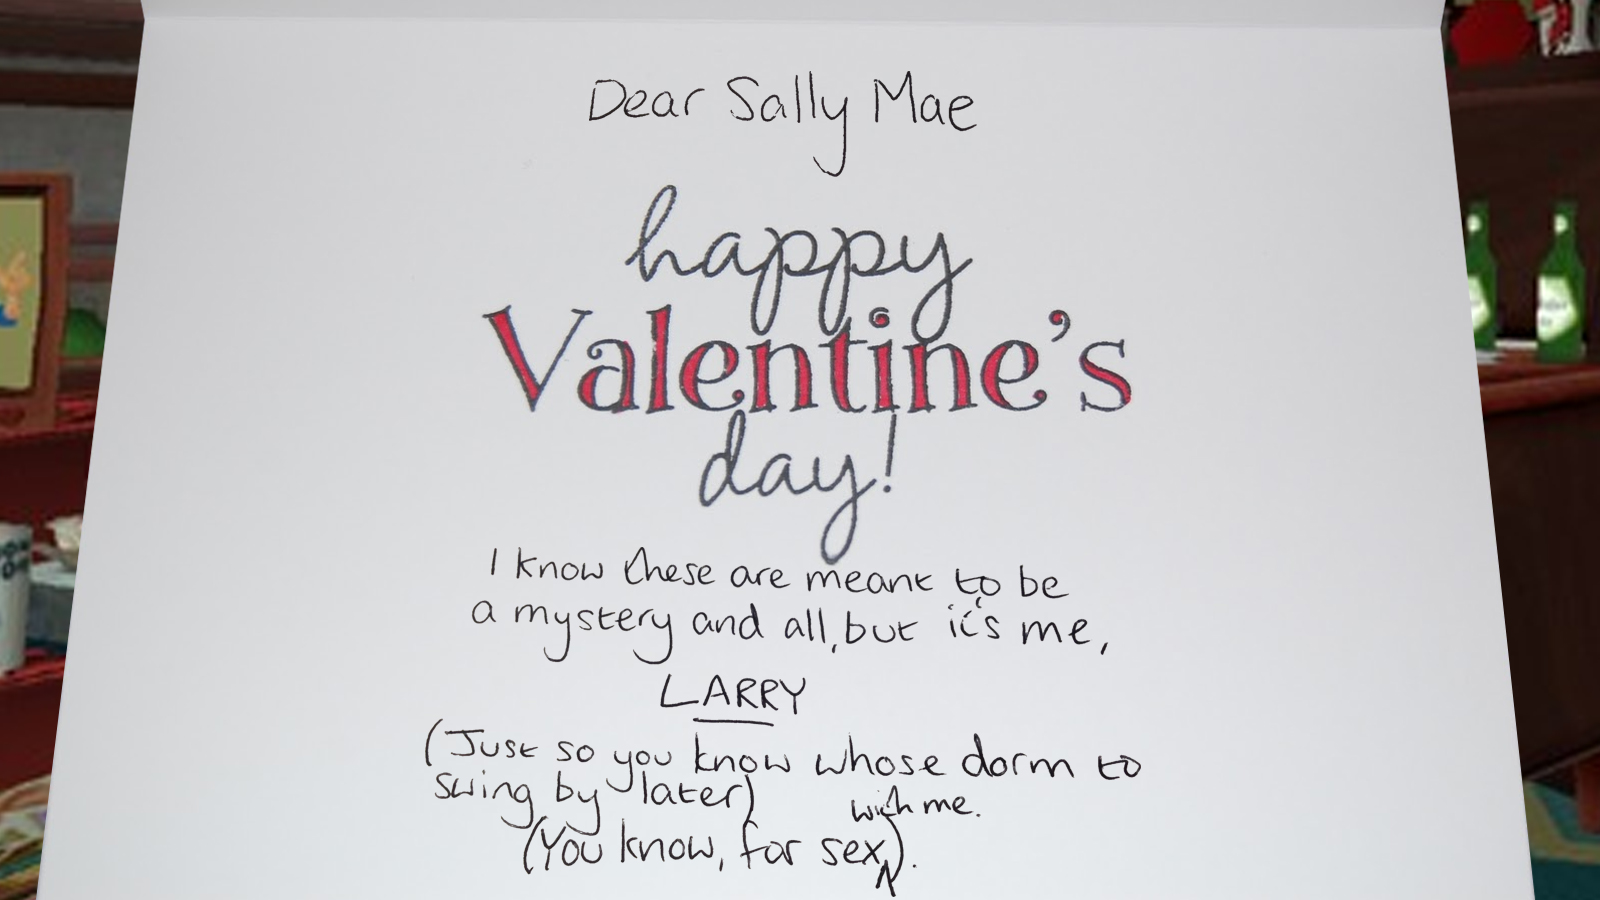 Dear Sally Mae
happy
Valentine's
day!
I know these are meant to be
a mystery and all, but it's me,
LARRY
(Just so you know whose dorm to
swing by later)
with me.
(You know, for sex).